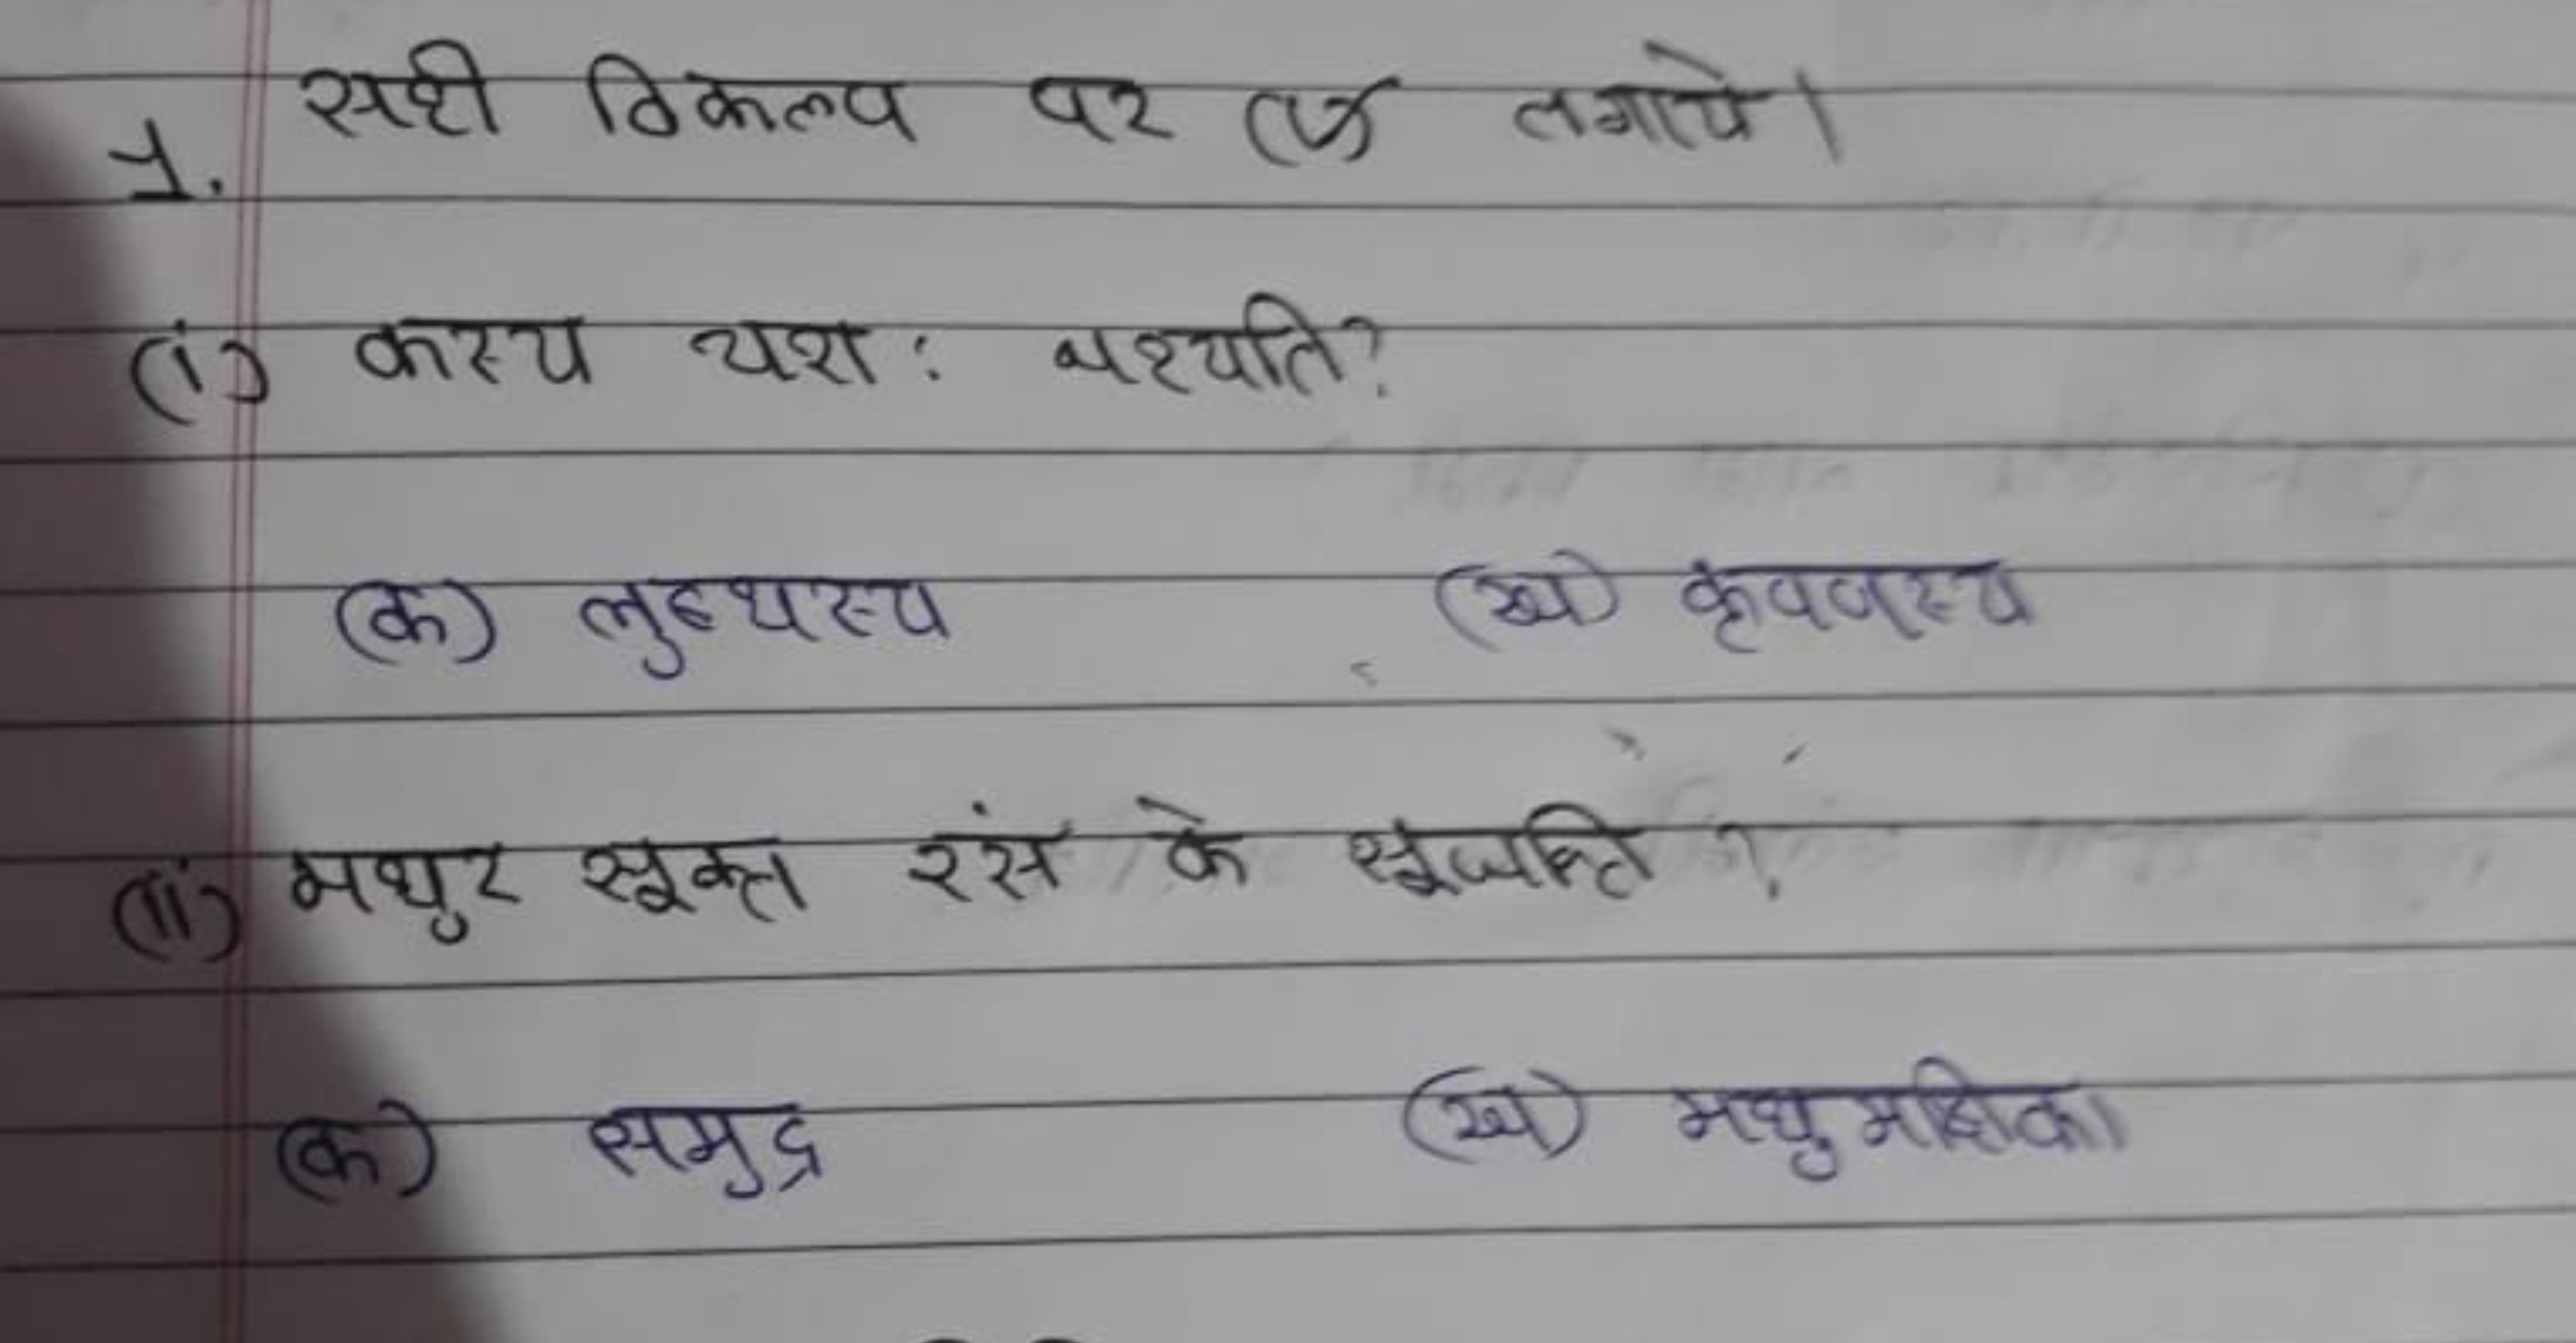 1. सही विकल्प पर (✓) लगाये।
(i) कस्य यश: नश्यति?
(क) लुब्धस्य (ख) कृपणस्य
(ii) मधुर सूक्त रंस के सृजन्ति ?
(क) समुद्र (ख) मधुमक्षिका